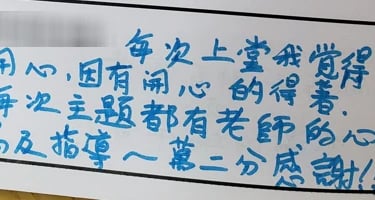 每次上堂我覺得
開心，因有開心的得着．
每次主題都有老師的心
及指導～萬二分感謝！